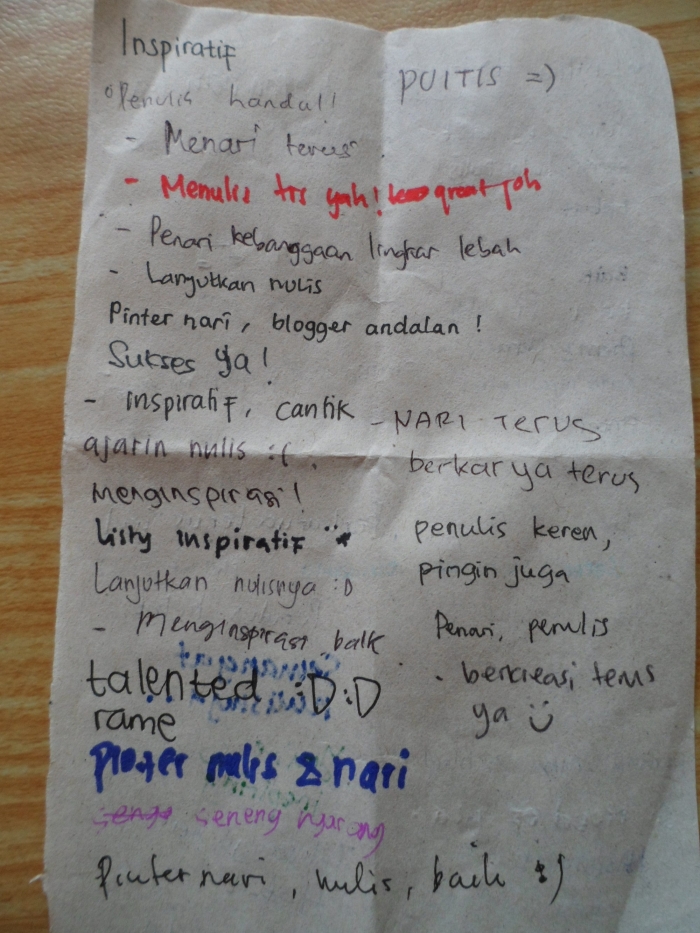 Inspiratif
Penulis handal!!
- Menari terus
- Menulis trs yah! great job
- Penari kebanggaan lingkar lebah
- Lanjutkan nulis
Pinter nari, blogger andalan!
Sukses ya!
- inspiratif, cantik
ajarin nulis :(
menginspirasi!
Listy inspiratif
Lanjutkan nulisnya :D
- Menginspirasi baik
talented :D :D
rame
pinter nulis & nari
seneng ngarang
Pinter nari, nulis, baik :)
PUITIS =)
- NARI TERUS
berkarya terus
penulis keren,
pingin juga
Penari, penulis
. berkreasi terus
ya